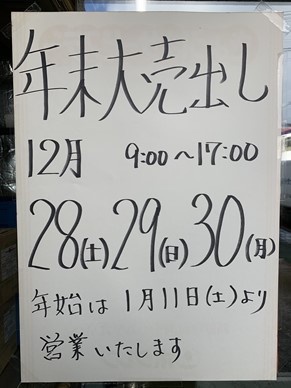 年末大売出し
12月 9:00～17:00
28(土)29(日)30(月)
年始は1月11日(土)より
営業いたします